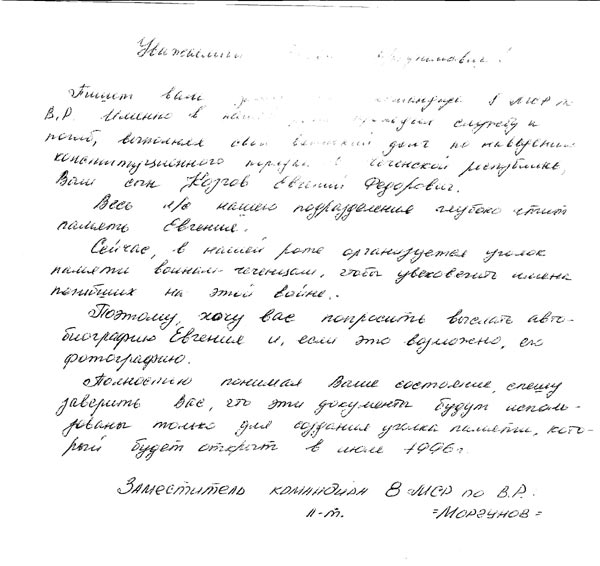 Уважаемый
Пишет вам командира МСР по
В.Р. Именно в службу и
погиб, выполняя свой долг по наведению
конституционного порядка в Чеченской республике,
Ваш сын Евгений Федорович.
Весь л/с нашего подразделения глубоко чтит
память Евгения.
Сейчас, в нашей роте организуется уголок
памяти воинам-чеченцам, чтобы увековечить имена
погибших на этой войне.
Поэтому, хочу вас попросить выслать авто-
биографию Евгения и, если это возможно, его
фотографию.
Полностью понимая Ваше состояние, спешу
заверить Вас, что эти документы будут исполь-
зованы только для создания уголка памяти, кото-
рый будет открыт в июле 1996г.
Заместитель командира 8 МСР по В.Р.
=Моргунов=